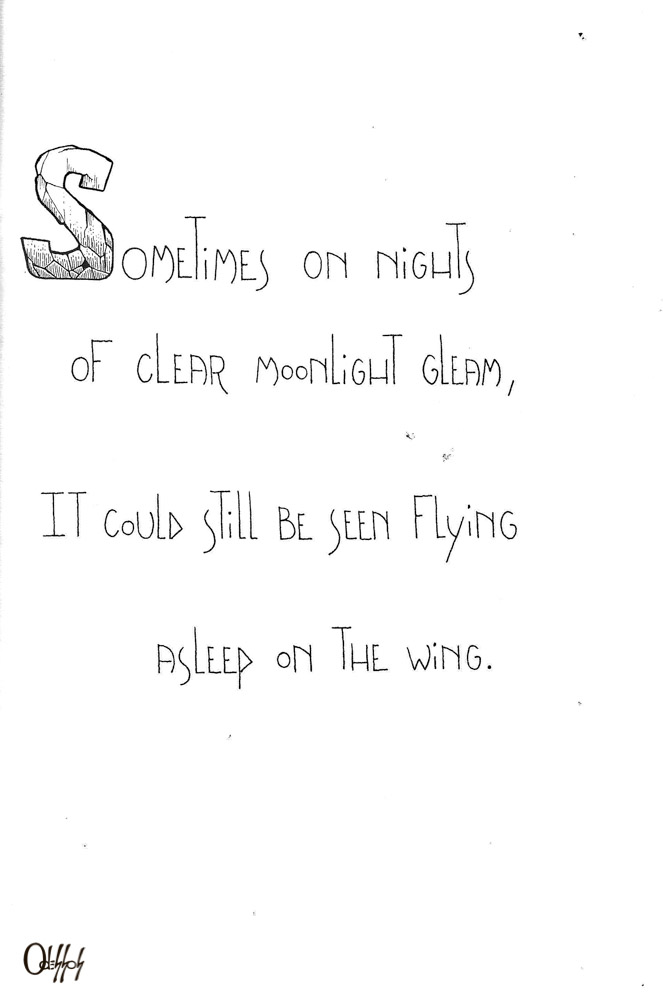 SOMETIMES ON NIGHTS
OF CLEAR MOONLIGHT GLEAM,
IT COULD STILL BE SEEN FLYING
ASLEEP ON THE WING.